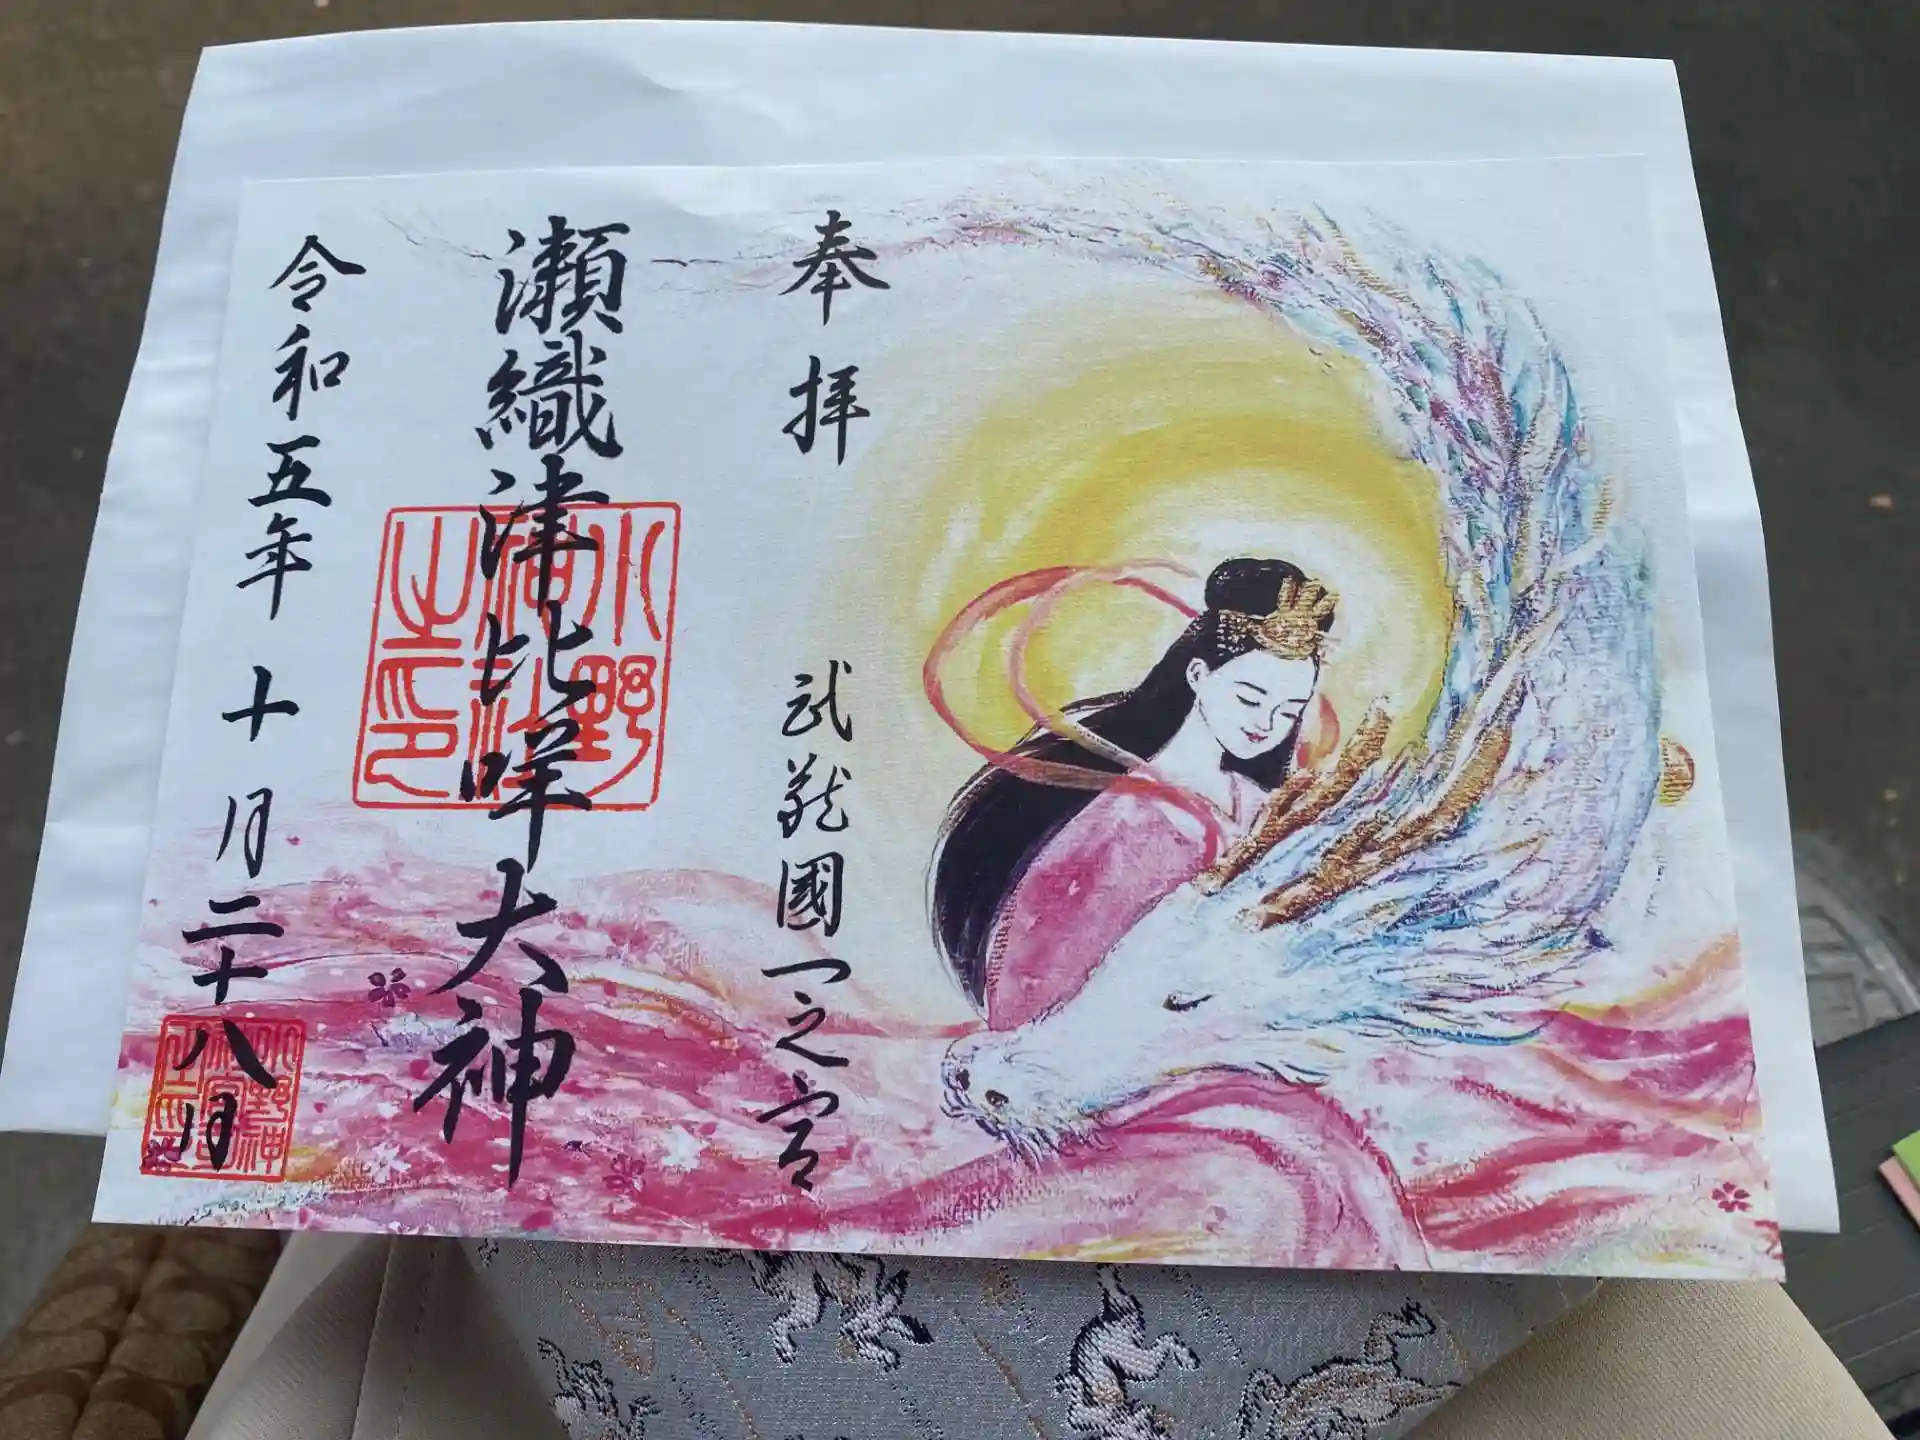 奉拝
武蔵國一之宮
瀬織津比咩大神
令和五年 十月二十八日